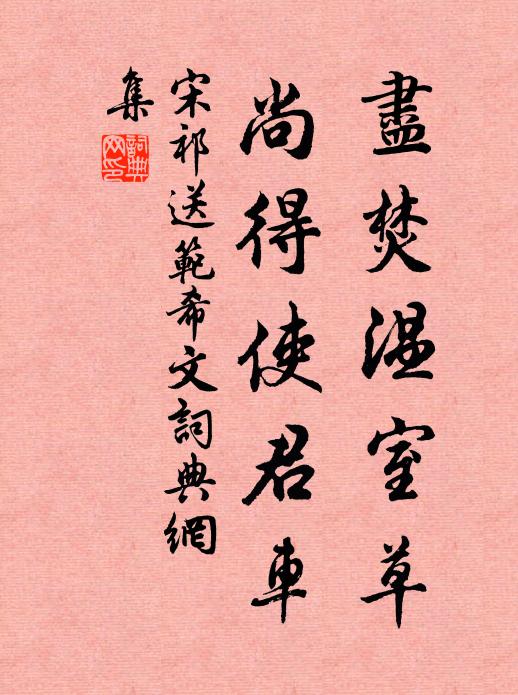 盡焚溫室草
尚得使君車
宋祁送範希文詞典網
集
詞典
网印